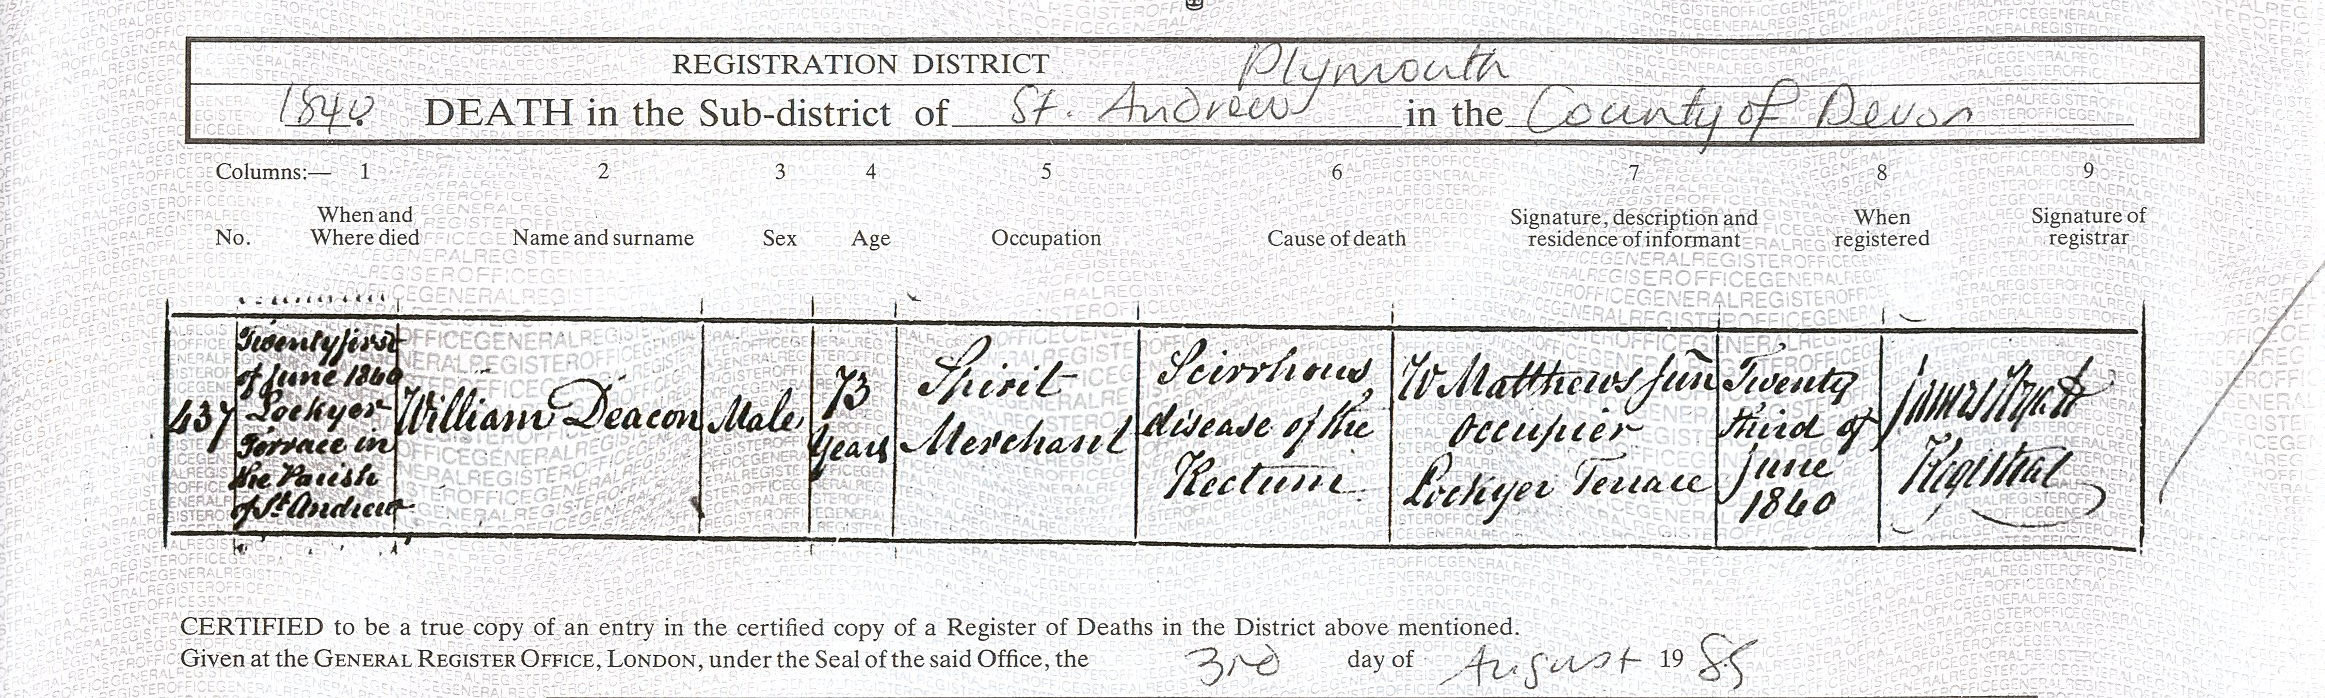 REGISTRATION DISTRICT Plymouth
1840. DEATH in the Sub-district of St. Andrew in the County of Devon
Columns:— 1 2 3 4 5 6 7 8 9
No. When and Where died Name and surname Sex Age Occupation Cause of death Signature, description and residence of informant When registered Signature of registrar
437
Twenty first
of June 1840
Lockyer
Terrace in
the Parish
of St Andrew
William Deacon
Male
73
Years
Spirit
Merchant
Scirrhous
disease of the
Rectum
W Matthews Jun
occupier
Lockyer Terrace
Twenty
third of
June
1840
James
Registrar
CERTIFIED to be a true copy of an entry in the certified copy of a Register of Deaths in the District above mentioned.
Given at the GENERAL REGISTER OFFICE, LONDON, under the Seal of the said Office, the 3rd day of August 1985